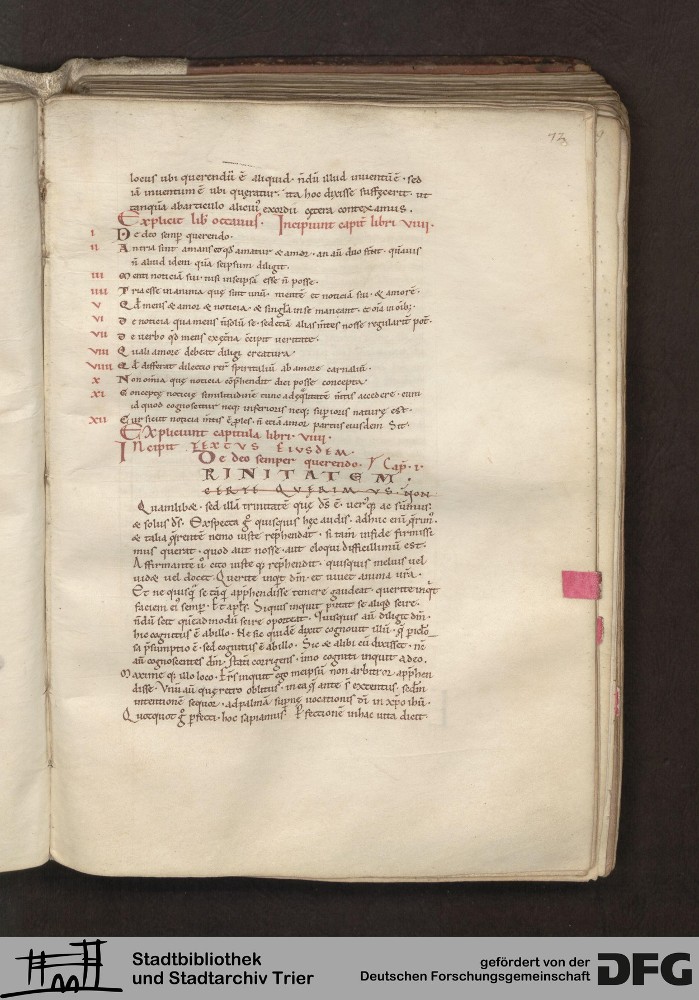 73
locus ubi querendū ē aliquid· n̄dū illud inuentū ē· sed
iā inuentum ē ubi quęratur. ita hoc dixisse suffęcerit· ut
tanquā abarticulo alicui᷒ exordii cętera contexamus.
Explicit lib̄ octauus. Incipiunt capit̄ libri VIIII.
I De deo semp̱ querendo.
II An tria sint amans et qd̄ amatur & amor· an aū duo sint· quāuis
n̄ aliud idem quā seipsum diligit.
III Menti noticiā sui· nisi inseipsā esse n̄ posse.
IIII Tria esse in anima quę sint unū· mentē et noticiā sui· & amorē.
V Qd̄ mens & amor & noticia· & singla inse maneant· et oīa in oīb;.
VI De noticia qua mens
VII De verbo qd̄ mens
VIII Quali amore debeat diligi creatura.
VIIII Qd̄ differat dilectio rerū spiritaliū ab amore carnaliū.
X Non omnia quę noticia cōp̱hendit dici posse concepta.
XI Conceptę noticię similitudinē tunc adęqlitatē m̄tis accedere· cum
id quod cognoscitur neq; inferioris neq; sup̱ioris naturę est.
XII Cur sicut noticia m̄tis ē p̱les· n̄ etiā amor partus eiusdem sit.
Expliciunt capitula libri· VIIII.
Incipit TEXTUS EIUSDEM.
De deo semper querendo. Cap̄· I·
RINITATEM
CERTE QUERIMUS· NON
Quamlibet· sed illā trinitatē quę ds̄ ē· uer᷒q; ac sūmus·
& solus ds̄. Exspecta g̊ quisquis hęc audis· adhuc enī querim᷒
& talia querentē nemo iuste rep̱hendat· si tam̄ infide firmissi
mus querit· quod aut nosse· aut eloqui difficillimū est.
Affirmantē ū cito iuste q; rep̱hendit· quisquis melius uel
uidet uel docet. Querite inqt dm̄· et uiuet anima ur̄a.
Et ne quisq̄ se tāq̄ app̱hendisse temere gaudeat· querite inqt
faciem ei᷒ semp̱. Et apl̄s. Siquis inquit putat se aliqd scire·
n̄dū scit quēadmodū scire oporteat. Quisquis aū diligit dm̄·
hic cognitus ē abillo. Nec sic quidē dixit cognouit illū·
sa p̱sumptio ē· sed cognitus ē abillo. Sic & alibi cū dixisset·
aū cognoscentes dm̄· statī corrigens· imo cogniti inquit adeo.
Maxime q; illo loco. Fr̄s inquit ego meipsū non arbitror app̱hen
disse. Vnū aū quę retro oblitus· in ea q̄ ante s̄ extentus· scd̄m
intentionē sequor· adpalmā sup̱nę uocationis dī in xp̄o ihū.
Quotquot g̊ p̱fecti· hoc sapiamus. P̱fectionē inhac uita dicit
Stadtbibliothek
und Stadtarchiv Trier
gefördert von der
Deutschen Forschungsgemeinschaft
DFG